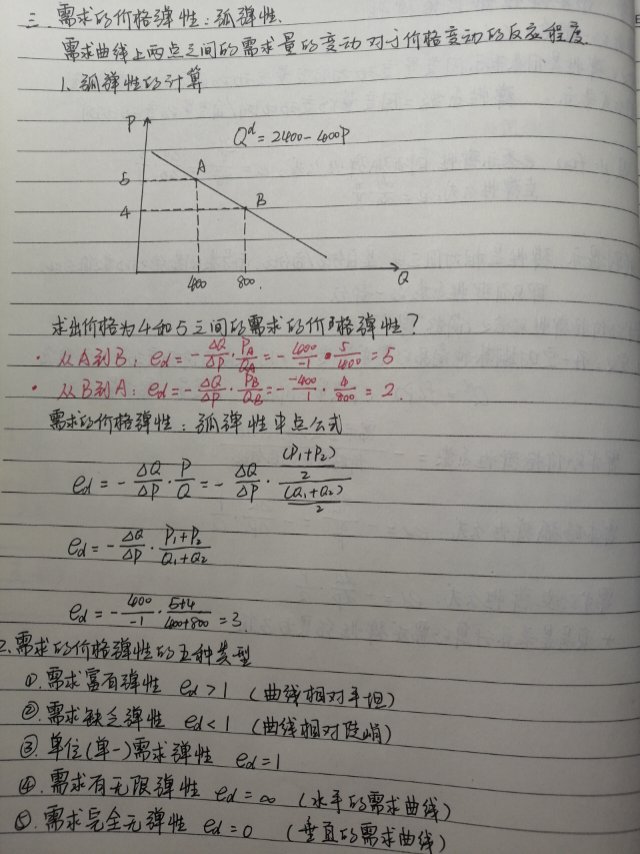 三 需求的价格弹性:弧弹性.
需求曲线上两点之间的需求量的变动对于价格变动的反应程度.
1. 弧弹性的计算
P
Q^d = 2400-400P
5
A
4
B
400
800.
Q
求出价格为4和5之间的需求的价格弹性?
· 从A到B: ed = -ΔQ/ΔP · P_A/Q_A = -400/-1 · 5/400 = 5
· 从B到A: ed = -ΔQ/ΔP · P_B/Q_B = -(-400)/1 · 4/800 = 2.
需求的价格弹性:弧弹性中点公式
ed = -ΔQ/ΔP · P/Q = -ΔQ/ΔP · ((P₁+P₂)/2)/((Q₁+Q₂)/2)
ed = -ΔQ/ΔP · (P₁+P₂)/(Q₁+Q₂)
ed = -400/-1 · (5+4)/(400+800) = 3.
2. 需求的价格弹性的五种类型
①. 需求富有弹性 ed>1 (曲线相对平坦)
②. 需求缺乏弹性 ed<1 (曲线相对陡峭)
③. 单位(单一)需求弹性 ed=1
④. 需求有无限弹性 ed=∞ (水平的需求曲线)
⑤. 需求完全无弹性 ed=0 (垂直的需求曲线)